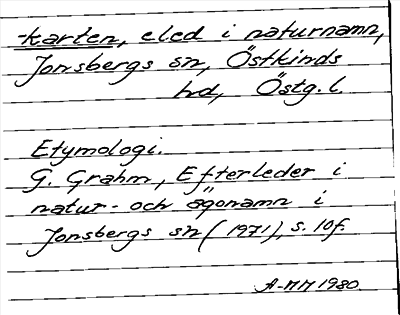 -karten, eled i naturnamn,
Jonsbergs sn, Östkinds
hd, Östg. l.
Etymologi.
G. Grahm, Efterleder i
natur- och ägonamn i
Jonsbergs sn (1971), s. 10f.
A-MM 1980